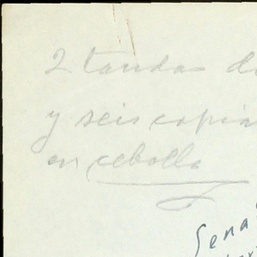 2 tandas d
y seis copia
en cebolla
Sena